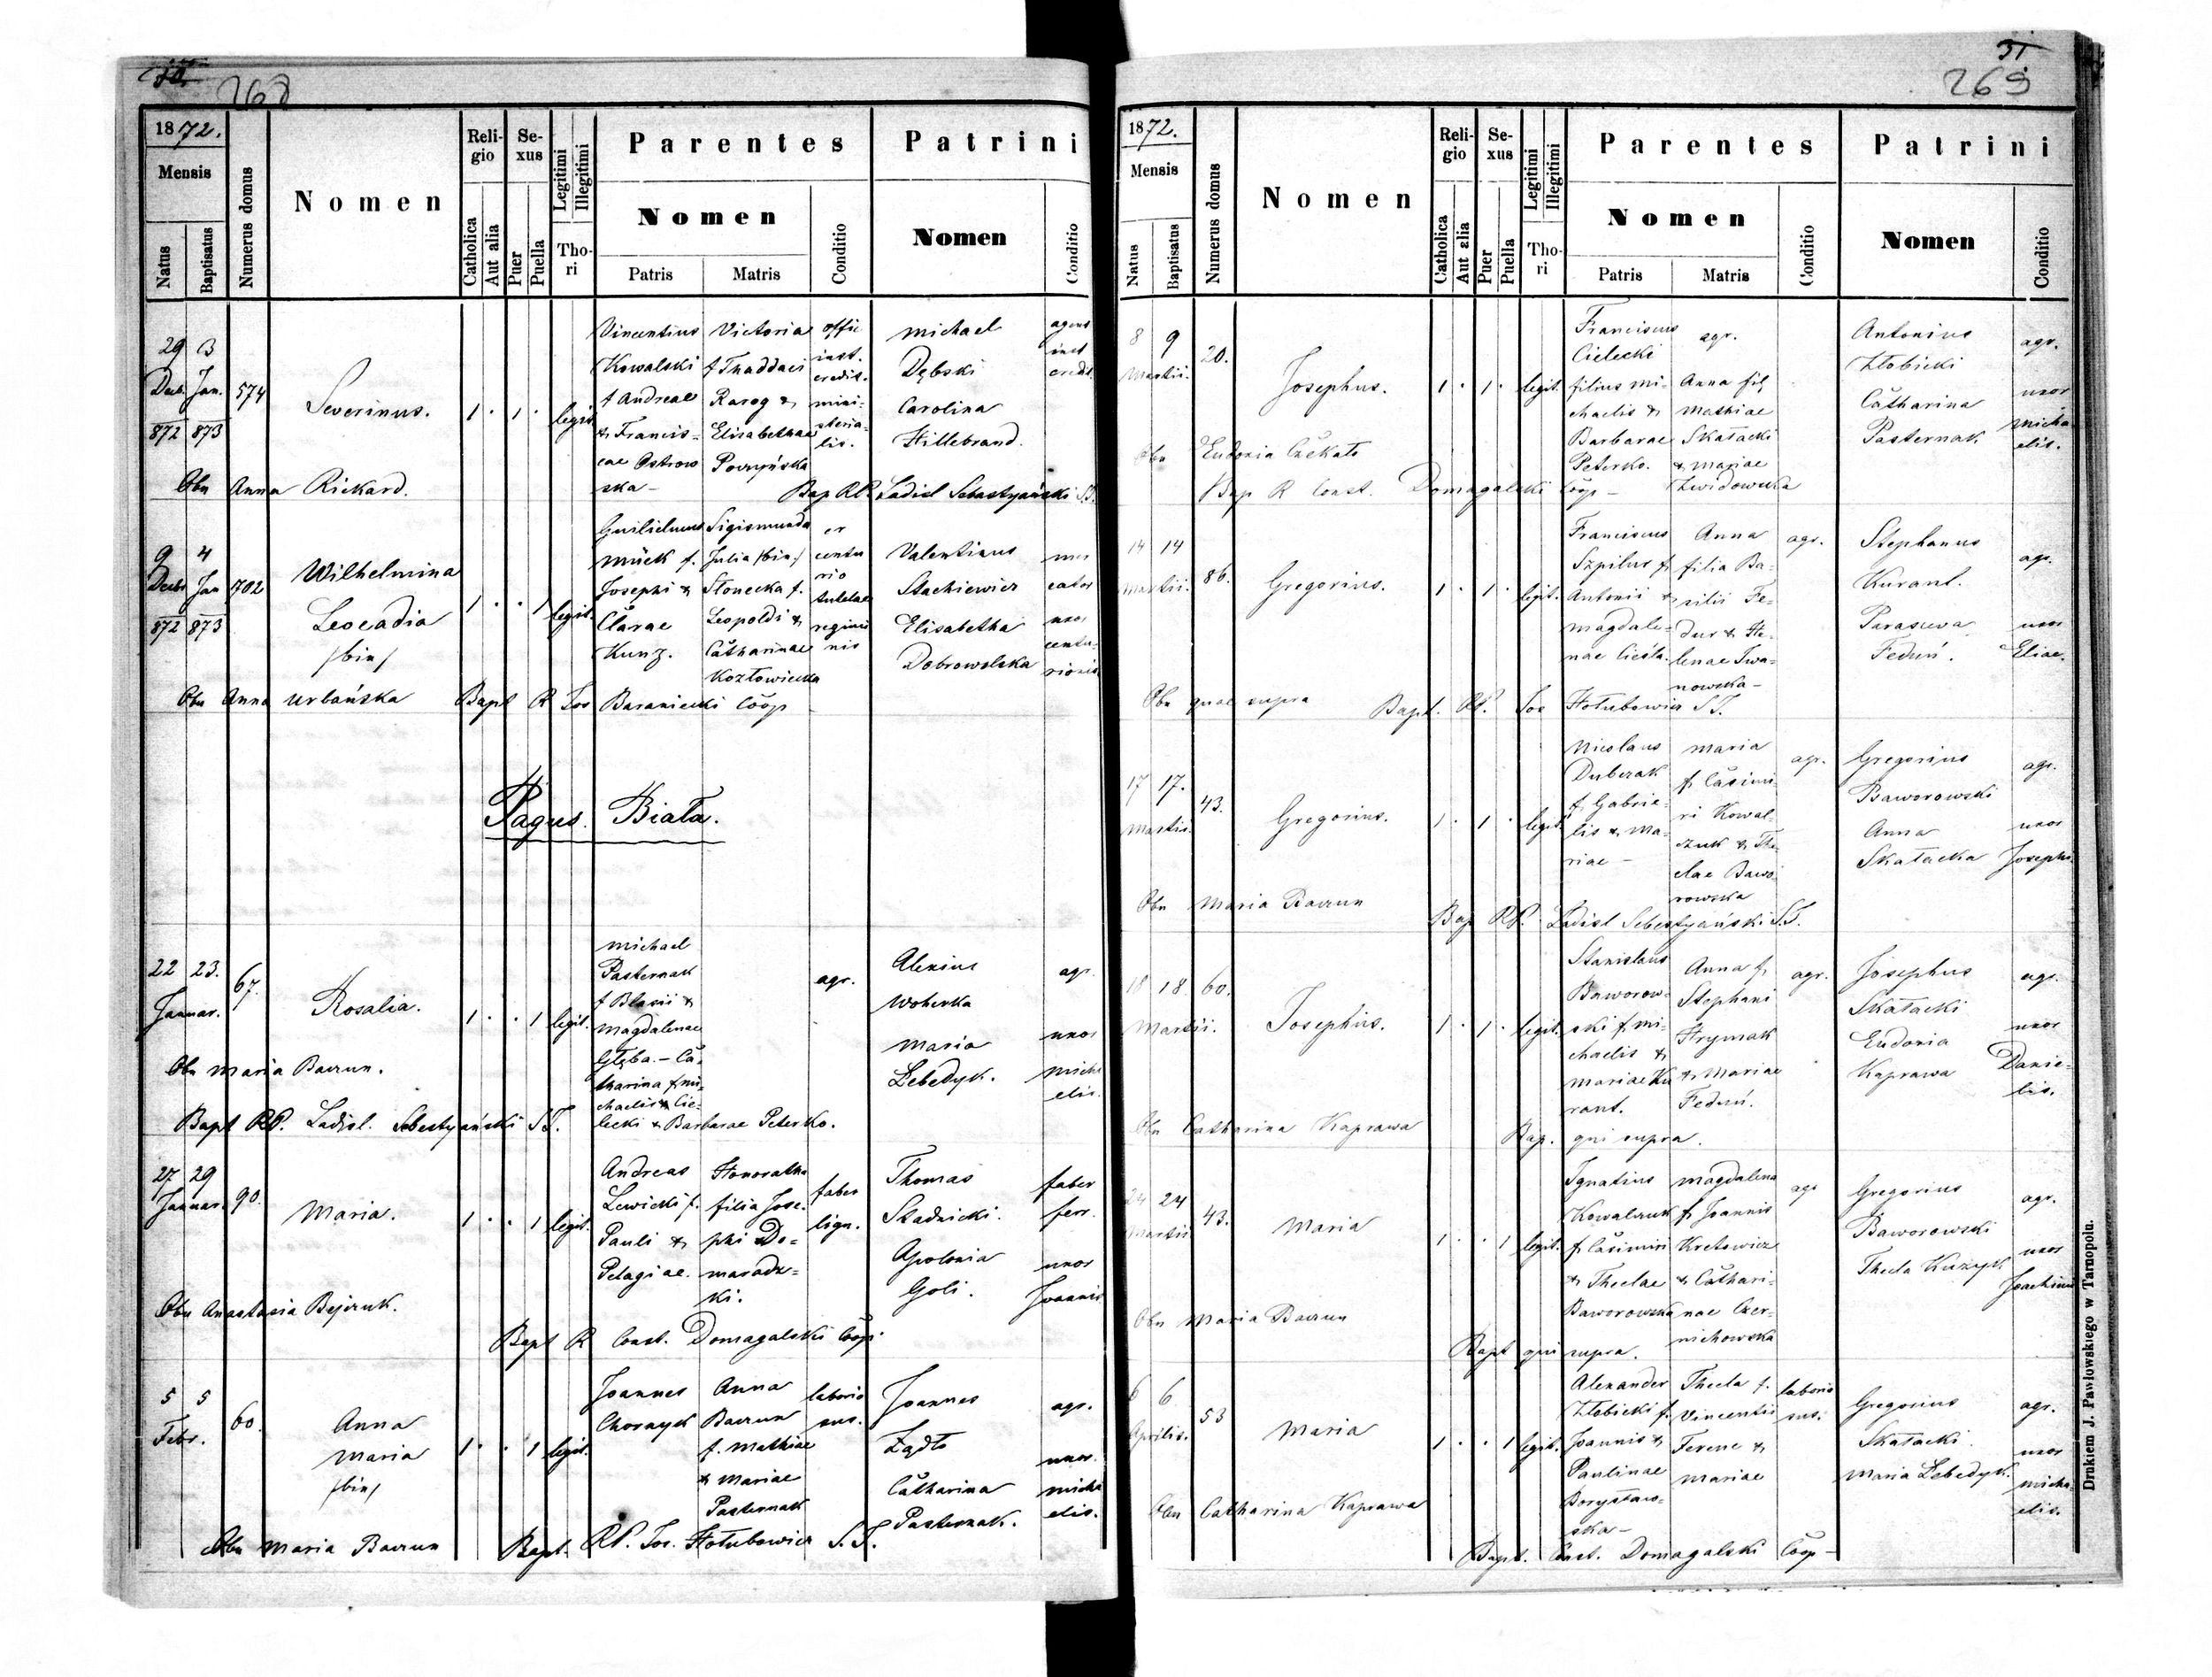 268
1872.
Mensis
Natus
Baptisatus
Numerus domus
Nomen
Religio
Catholica
Aut alia
Sexus
Puer
Puella
Legitimi
Illegitimi
Thori
Parentes
Nomen
Patris
Matris
Conditio
Patrini
Nomen
Conditio
29 3
Decb. Jan.
872 873
574
Severinus.
1 . 1 .
legit.
Vincentius
Kowalski
f Andreae
& Francis=
cae Ostrow
ska -
Victoria
f Thaddaei
Rarog &
Elisabethae
offic
inst.
credit.
mini-
steria-
lis.
Michael
Dębski
Carolina
Hillebrand.
agens
inst
credit.
Obu Anna Rickard.
Bap RP. Ladisl Sebastyański S.J.
9 4
Decbr Jan
872 873
702
Wilhelmina
Leocadia
/bin/
1 . . 1
legit.
Guilielmus
Mück f.
Josephi &
Clarae
Kunz.
Sigismunda
Julia /bin/
Słonecka f.
Leopoldi &
Catharinae
Kozłowiecka
ex
centu
rio
tutelae
regimi
nis
Valentinus
Stachiewicz
Elisabetha
Dobrowolska
mer
cator
uxor
centu-
rionis
Obu Anna Urbańska
Bapt R Jos Baraniecki Coop
Pagus. Biała.
22 23.
Januar.
67.
Rosalia.
1 . . 1
legit.
Michael
Pasternak
f Blasii &
Magdalenae
Głęba. - Ca-
tharina f Mi-
chaelis Cie-
lecki & Barbarae Peterko.
agr.
Alexius
Woherka
Maria
Lebedyk.
agr.
uxor
Micha
elis.
Obu Maria Baczun.
Bapt RP. Ladisl. Sebestyański S.J.
27 29
Januar.
90.
Maria.
1 . . 1
legit.
Andreas
Lewicki f.
Pauli &
Pelagiae.
Honoratha
filia Jose-
phi Do=
maradz=
ki.
faber
lign.
Thomas
Skadnicki.
Apolonia
Goli.
faber
ferr.
uxor
Joannis
Obu Anastasia Bejczuk.
Bapt R Const. Domagalski Coop.
5 5
Febr.
60.
Anna
Maria
/bin/
1 . . 1
legit.
Joannes
Chornyk
Anna
Baczun
f. Mathiae
& Mariae
Pasternak
laborio
sus.
Joannes
Żądło
Catharina
Pasternak.
agr.
uxor.
Micha
elis.
Obu Maria Baczun
Bapt. RP. Jos. Hołubowicz S.J.
31
269
1872.
Mensis
Natus
Baptisatus
Numerus domus
Nomen
Religio
Catholica
Aut alia
Sexus
Puer
Puella
Legitimi
Illegitimi
Thori
Parentes
Nomen
Patris
Matris
Conditio
Patrini
Nomen
Conditio
8 9
Martii.
20.
Josephus.
1 . 1 .
legit.
Franciscus
Cielecki
filius Mi-
chaelis &
Barbarae
Peterko.
agr.
Anna fil
Mathiae
Skałacki
& Mariae
Antonius
Złobicki
Catharina
Pasternak
agr.
uxor
Micha
elis.
Obu Eudoxia
Bap R Const. Domagalski Coop -
14 14
Martii.
86.
Gregorius.
1 . 1 .
legit.
Franciscus
Szpilur f
Antonii &
Magdale-
nae Cieśla.
Anna
filia Ba-
silii Fe-
dur & He-
lenae Iwa-
nowska -
agr.
Stephanus
Kurant.
Parasceva
Feduń.
agr.
uxor
Eliae.
Obu quae supra
Bapt. RP. Jos Hołubowicz S.J.
17 17.
Martii.
43.
Gregorius.
1 . 1 .
legit.
Nicolaus
Duberak
f. Gabrie-
lis & Ma-
riae -
Maria
f Casimi
ri Kowal-
czuk & The
clae Bawo
rowska
agr.
Gregorius
Baworowski
Anna
Skałacka
agr.
uxor
Josephi
Obu Maria Baczun
Bap RP. Ladisl Sebestyański S.J.
18 18
Martii.
60.
Josephus.
1 . 1 .
legit.
Stanislaus
Baworow-
ski f. Mi-
chaelis &
Mariae Ku
rant.
Anna f
Stephani
Hrymak
& Mariae
Feduń.
agr.
Josephus
Skałacki
Eudoxia
Kaprawa
agr.
uxor
Danie-
lis.
Obu Catharina Kaprawa
Bap. qui supra.
24 24
Martii
43.
Maria
1 . . 1
legit.
Ignatius
Kowalczuk
f Casimiri
& Theclae
Baworowska
Magdalena
f Joannis
Kretowicz
& Cathari-
nae Czer-
nichowska
agr
Gregorius
Baworowski
Thecla Kuzyk
agr.
uxor
Joachimi
Obu Maria Baczun
Bapt qui supra.
6 6
Aprilis.
53
Maria
1 . . 1
legit.
Alexander
Złobicki f.
Joannis &
Paulinae
Borysław-
ska -
Thecla f.
Vincentii
Ferenc &
Mariae
laborio
sus.
Gregorius
Skałacki.
Maria Lebedyk.
agr.
uxor
Micha-
elis.
Obu Catharina Kaprawa
Bapt. Const. Domagalski Coop -
Drukiem J. Pawłowskiego w Tarnopolu.